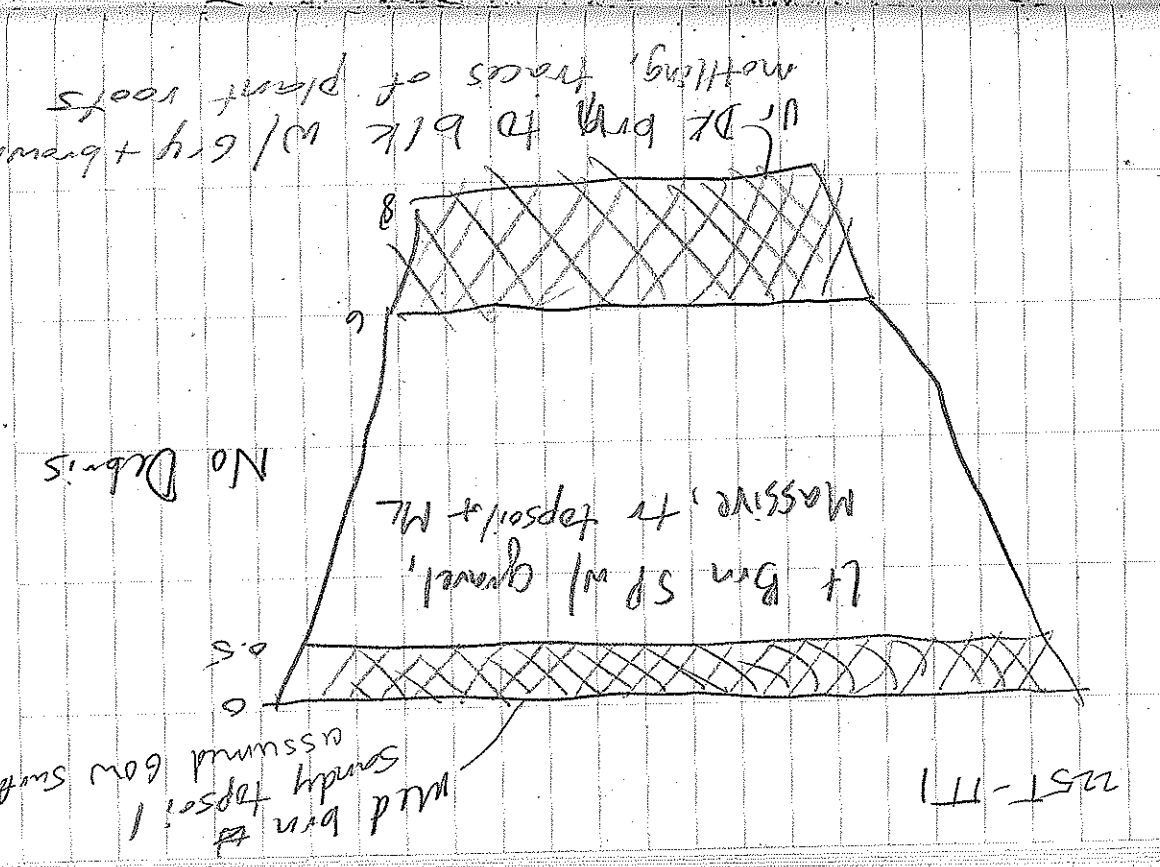 225T-TT1
Med brn
sandy topsoil
assumed bow
0
0.5
Lt Brn SP w/ gravel,
Massive, tr topsoil + ML
No Debris
6
8
V. Dk brn to blk w/ Gry + brown
mottling, traces of plant roots